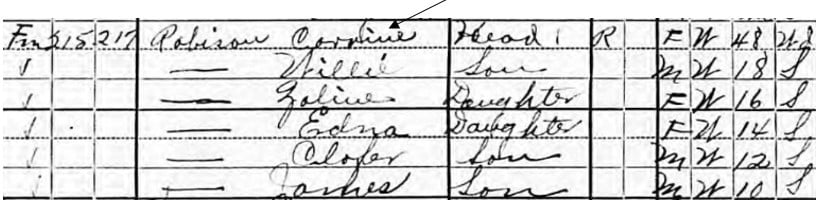 Fm 215 217 Robison Corrine Head R F W 48 Wd
— Willie Son M W 18 S
— Zoline Daughter F W 16 S
— Edna Daughter F W 14 S
— Clofer Son M W 12 S
— James Son M W 10 S